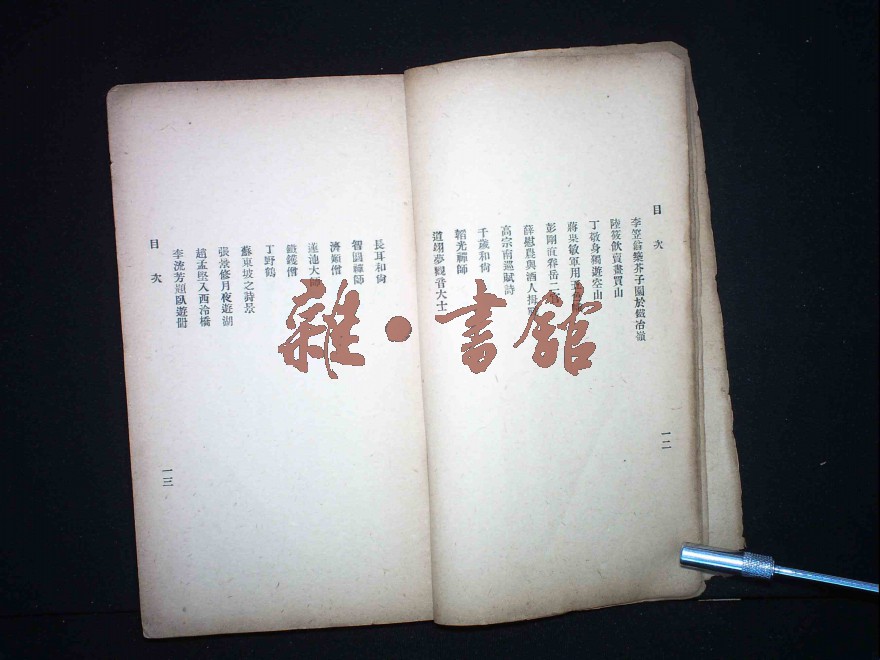 目次
李笠翁築芥子園於鐵冶嶺
陸筱飲賣畫買山
丁敬身獨遊空山
蔣果敏軍用
彭剛直眷岳二
薛慰農與酒人
高宗南巡賦詩
千歲和尙
韜光禪師
道翊夢觀音大士
一二
長耳和尙
智圓禪師
濟顚僧
蓮池大師
鎧鑊僧
丁野鶴
蘇東坡之詩景
張京修月夜遊湖
趙孟堅入西泠橋
李流芳題臥遊冊
目次
一三
雜·書館